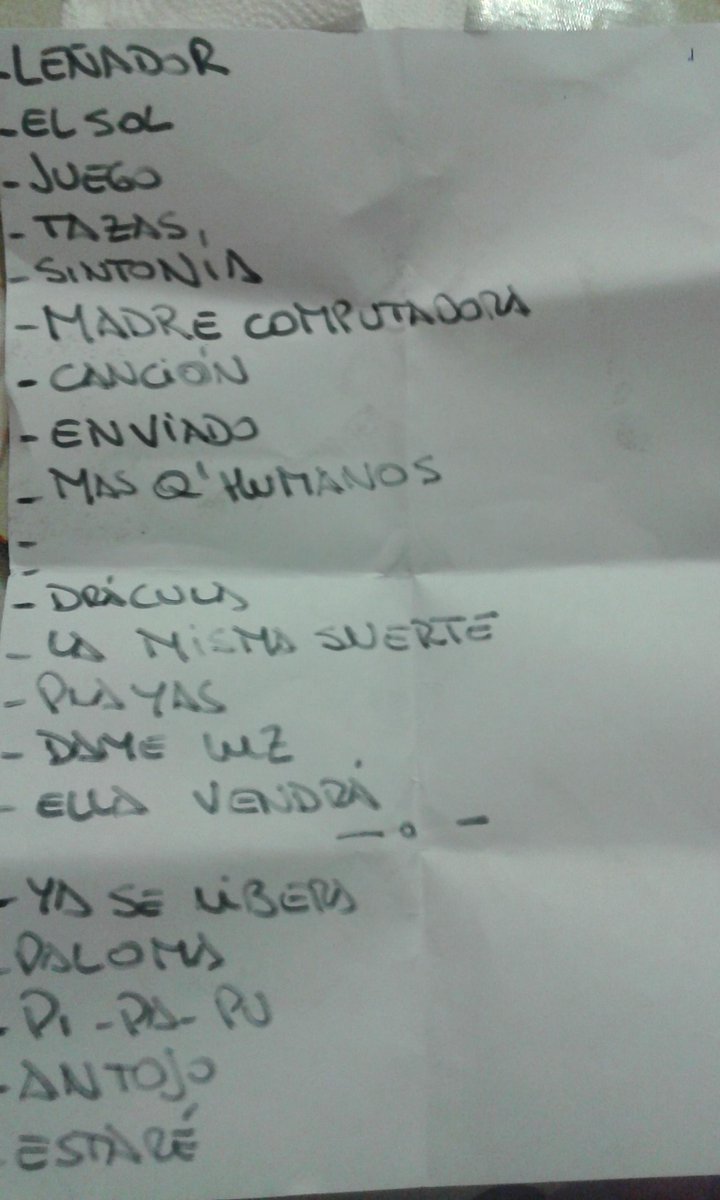 - LEÑADOR
- EL SOL
- JUEGO
- TAZAS,
- SINTONÍA
- MADRE COMPUTADORA
- CANCIÓN
- ENVIADO
- MAS Q' HUMANOS
-
- DRÁCULA
- LA MISMA SUERTE
- PLAYAS
- DAME LUZ
- ELLA VENDRÁ
— o —
- YA SE LIBERA
- PALOMA
- PI - PA - PU
- ANTOJO
- ESTARÉ